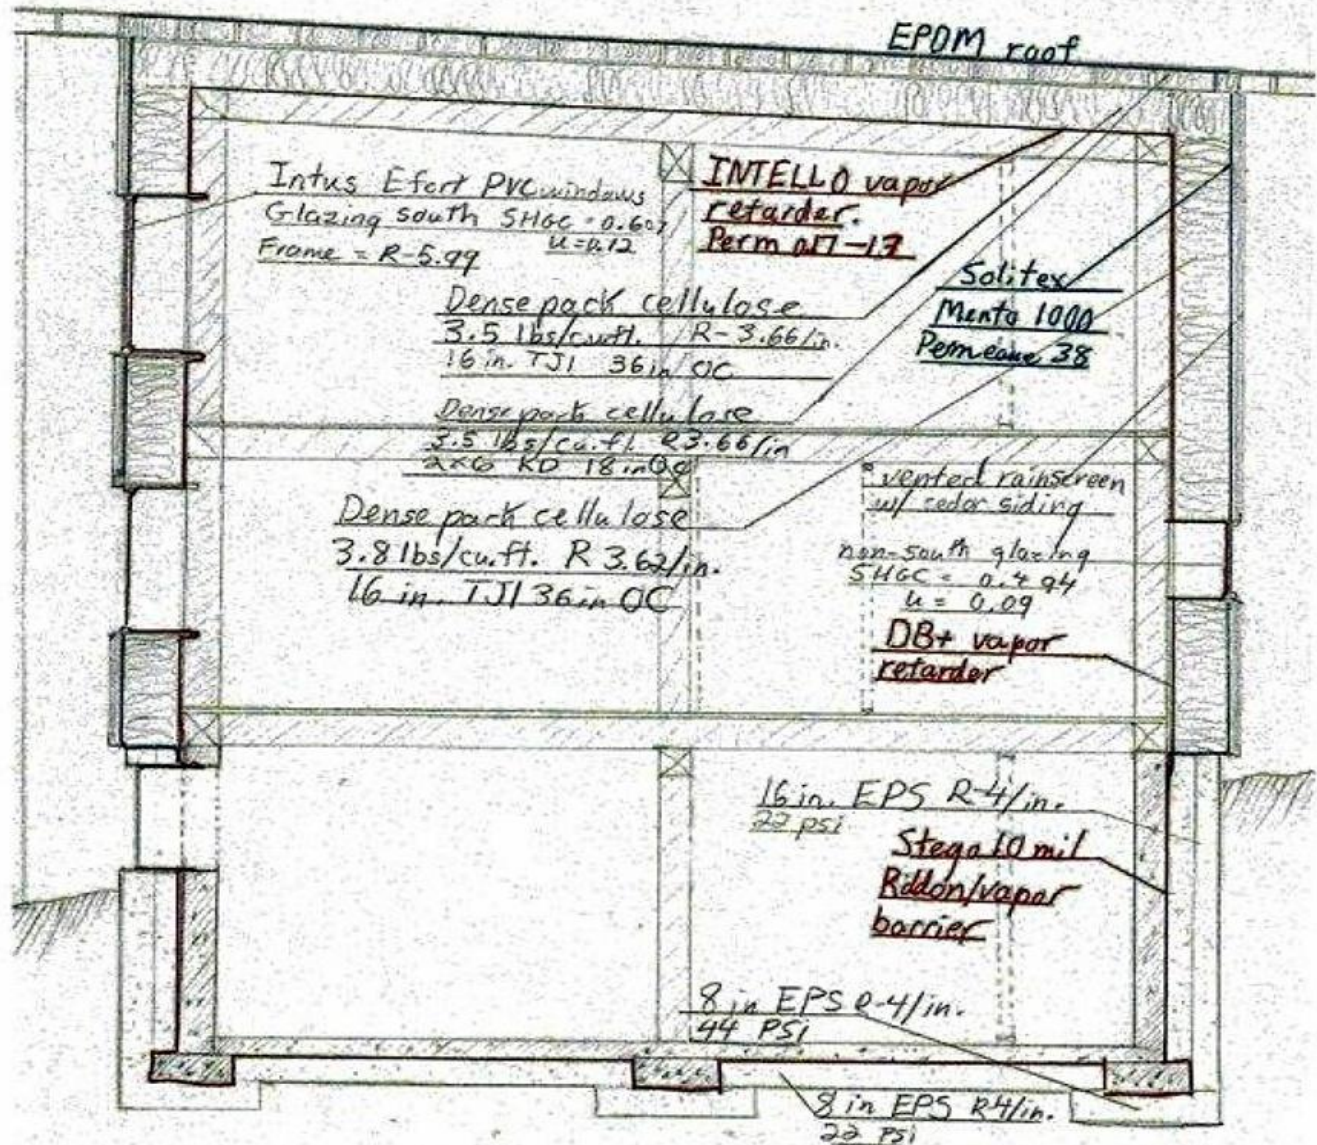 EPDM roof
Intus Efort PVC windows
Glazing south SHGC = 0.607
u=0.12
Frame = R-5.99
INTELLO vapor
retarder.
Perm 0.17-13
Solitex
Mento 1000
Permeance 38
Dense pack cellulose
3.5 lbs/cu.ft. R-3.66/in.
16 in. TJI 36in OC
Dense pack cellulose
3.5 lbs/cu.ft. R3.66/in
2x6 KD 18 in OC
Dense pack cellulose
3.8 lbs/cu.ft. R 3.62/in.
16 in. TJI 36 in OC
vented rainscreen
w/ cedar siding
non-south glazing
SHGC = 0.494
u = 0.09
DB+ vapor
retarder
16 in. EPS R-4/in.
22 psi
Stego 10 mil
Raddon/vapor
barrier
8 in EPS R-4/in.
44 PSI
8 in EPS R4/in.
22 psi